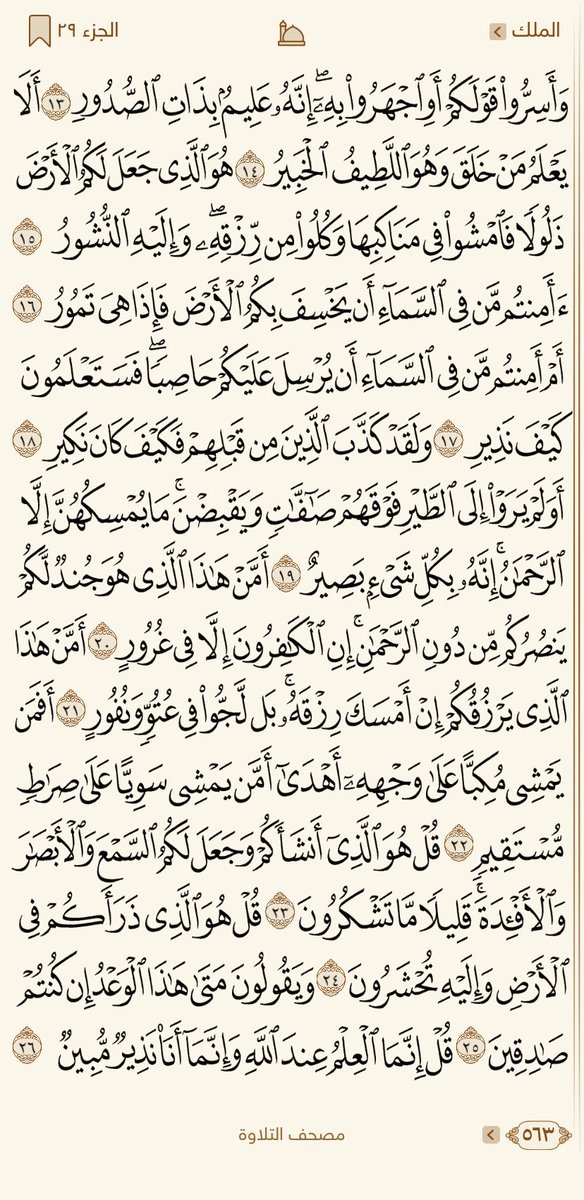 الملك
الجزء ٢٩
وَأَسِرُّوا۟ قَوْلَكُمْ أَوِ ٱجْهَرُوا۟ بِهِۦٓ ۖ إِنَّهُۥ عَلِيمٌۢ بِذَاتِ ٱلصُّدُورِ ١٣ أَلَا
يَعْلَمُ مَنْ خَلَقَ وَهُوَ ٱللَّطِيفُ ٱلْخَبِيرُ ١٤ هُوَ ٱلَّذِى جَعَلَ لَكُمُ ٱلْأَرْضَ
ذَلُولًا فَٱمْشُوا۟ فِى مَنَاكِبِهَا وَكُلُوا۟ مِن رِّزْقِهِۦ ۖ وَإِلَيْهِ ٱلنُّشُورُ ١٥
ءَأَمِنتُم مَّن فِى ٱلسَّمَآءِ أَن يَخْسِفَ بِكُمُ ٱلْأَرْضَ فَإِذَا هِىَ تَمُورُ ١٦
أَمْ أَمِنتُم مَّن فِى ٱلسَّمَآءِ أَن يُرْسِلَ عَلَيْكُمْ حَاصِبًا ۖ فَسَتَعْلَمُونَ
كَيْفَ نَذِيرِ ١٧ وَلَقَدْ كَذَّبَ ٱلَّذِينَ مِن قَبْلِهِمْ فَكَيْفَ كَانَ نَكِيرِ ١٨
أَوَلَمْ يَرَوْا۟ إِلَى ٱلطَّيْرِ فَوْقَهُمْ صَٰٓفَّٰتٍ وَيَقْبِضْنَ ۚ مَا يُمْسِكُهُنَّ إِلَّا
ٱلرَّحْمَٰنُ ۚ إِنَّهُۥ بِكُلِّ شَىْءٍۭ بَصِيرٌ ١٩ أَمَّنْ هَٰذَا ٱلَّذِى هُوَ جُندٌ لَّكُمْ
يَنصُرُكُم مِّن دُونِ ٱلرَّحْمَٰنِ ۚ إِنِ ٱلْكَٰفِرُونَ إِلَّا فِى غُرُورٍ ٢٠ أَمَّنْ هَٰذَا
ٱلَّذِى يَرْزُقُكُمْ إِنْ أَمْسَكَ رِزْقَهُۥ ۚ بَل لَّجُّوا۟ فِى عُتُوٍّ وَنُفُورٍ ٢١ أَفَمَن
يَمْشِى مُكِبًّا عَلَىٰ وَجْهِهِۦٓ أَهْدَىٰٓ أَمَّن يَمْشِى سَوِيًّا عَلَىٰ صِرَٰطٍ
مُّسْتَقِيمٍ ٢٢ قُلْ هُوَ ٱلَّذِىٓ أَنشَأَكُمْ وَجَعَلَ لَكُمُ ٱلسَّمْعَ وَٱلْأَبْصَٰرَ
وَٱلْأَفْـِٔدَةَ ۖ قَلِيلًا مَّا تَشْكُرُونَ ٢٣ قُلْ هُوَ ٱلَّذِى ذَرَأَكُمْ فِى
ٱلْأَرْضِ وَإِلَيْهِ تُحْشَرُونَ ٢٤ وَيَقُولُونَ مَتَىٰ هَٰذَا ٱلْوَعْدُ إِن كُنتُمْ
صَٰدِقِينَ ٢٥ قُلْ إِنَّمَا ٱلْعِلْمُ عِندَ ٱللَّهِ وَإِنَّمَآ أَنَا۠ نَذِيرٌ مُّبِينٌ ٢٦
٥٦٣
مصحف التلاوة